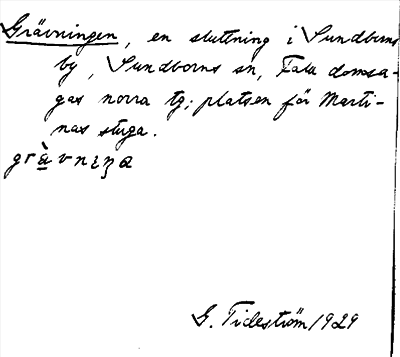 Grävningen, en sluttning i Sundborns
by, Sundborns sn, Falu domsa-
gas norra tg; platsen för Marti-
nas stuga.
G. Tideström 1929